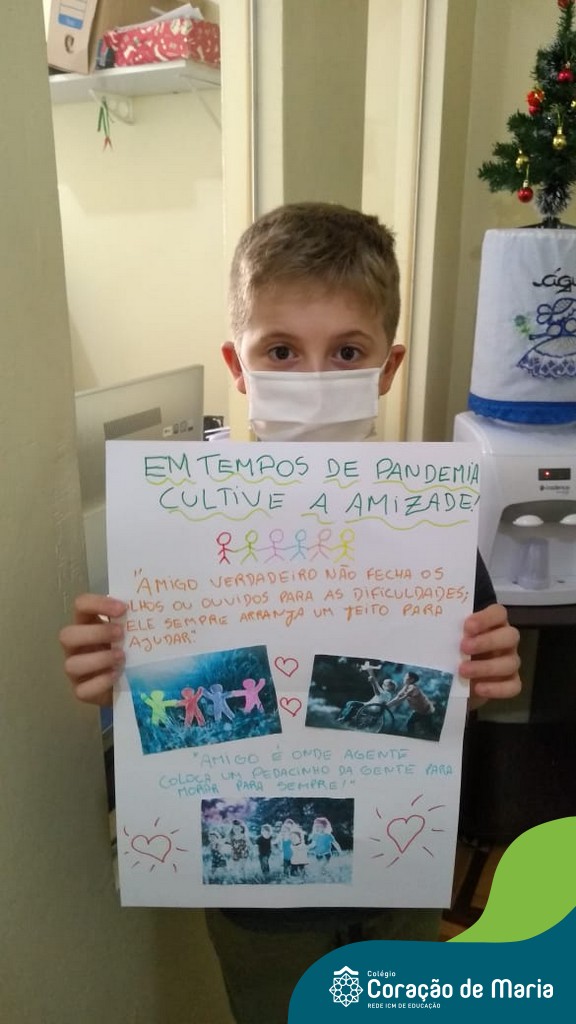 EM TEMPOS DE PANDEMIA
CULTIVE A AMIZADE!
"AMIGO VERDADEIRO NÃO FECHA OS
OLHOS OU OUVIDOS PARA AS DIFICULDADES;
ELE SEMPRE ARRANJA UM JEITO PARA
AJUDAR."
"AMIGO É ONDE AGENTE
COLOCA UM PEDACINHO DA GENTE PARA
MORAR PARA SEMPRE!"
Colégio
Coração de Maria
REDE ICM DE EDUCAÇÃO